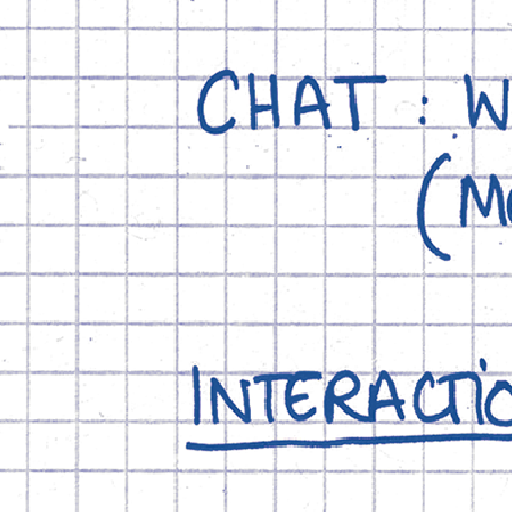 CHAT : W
(Mo
INTERACTIO